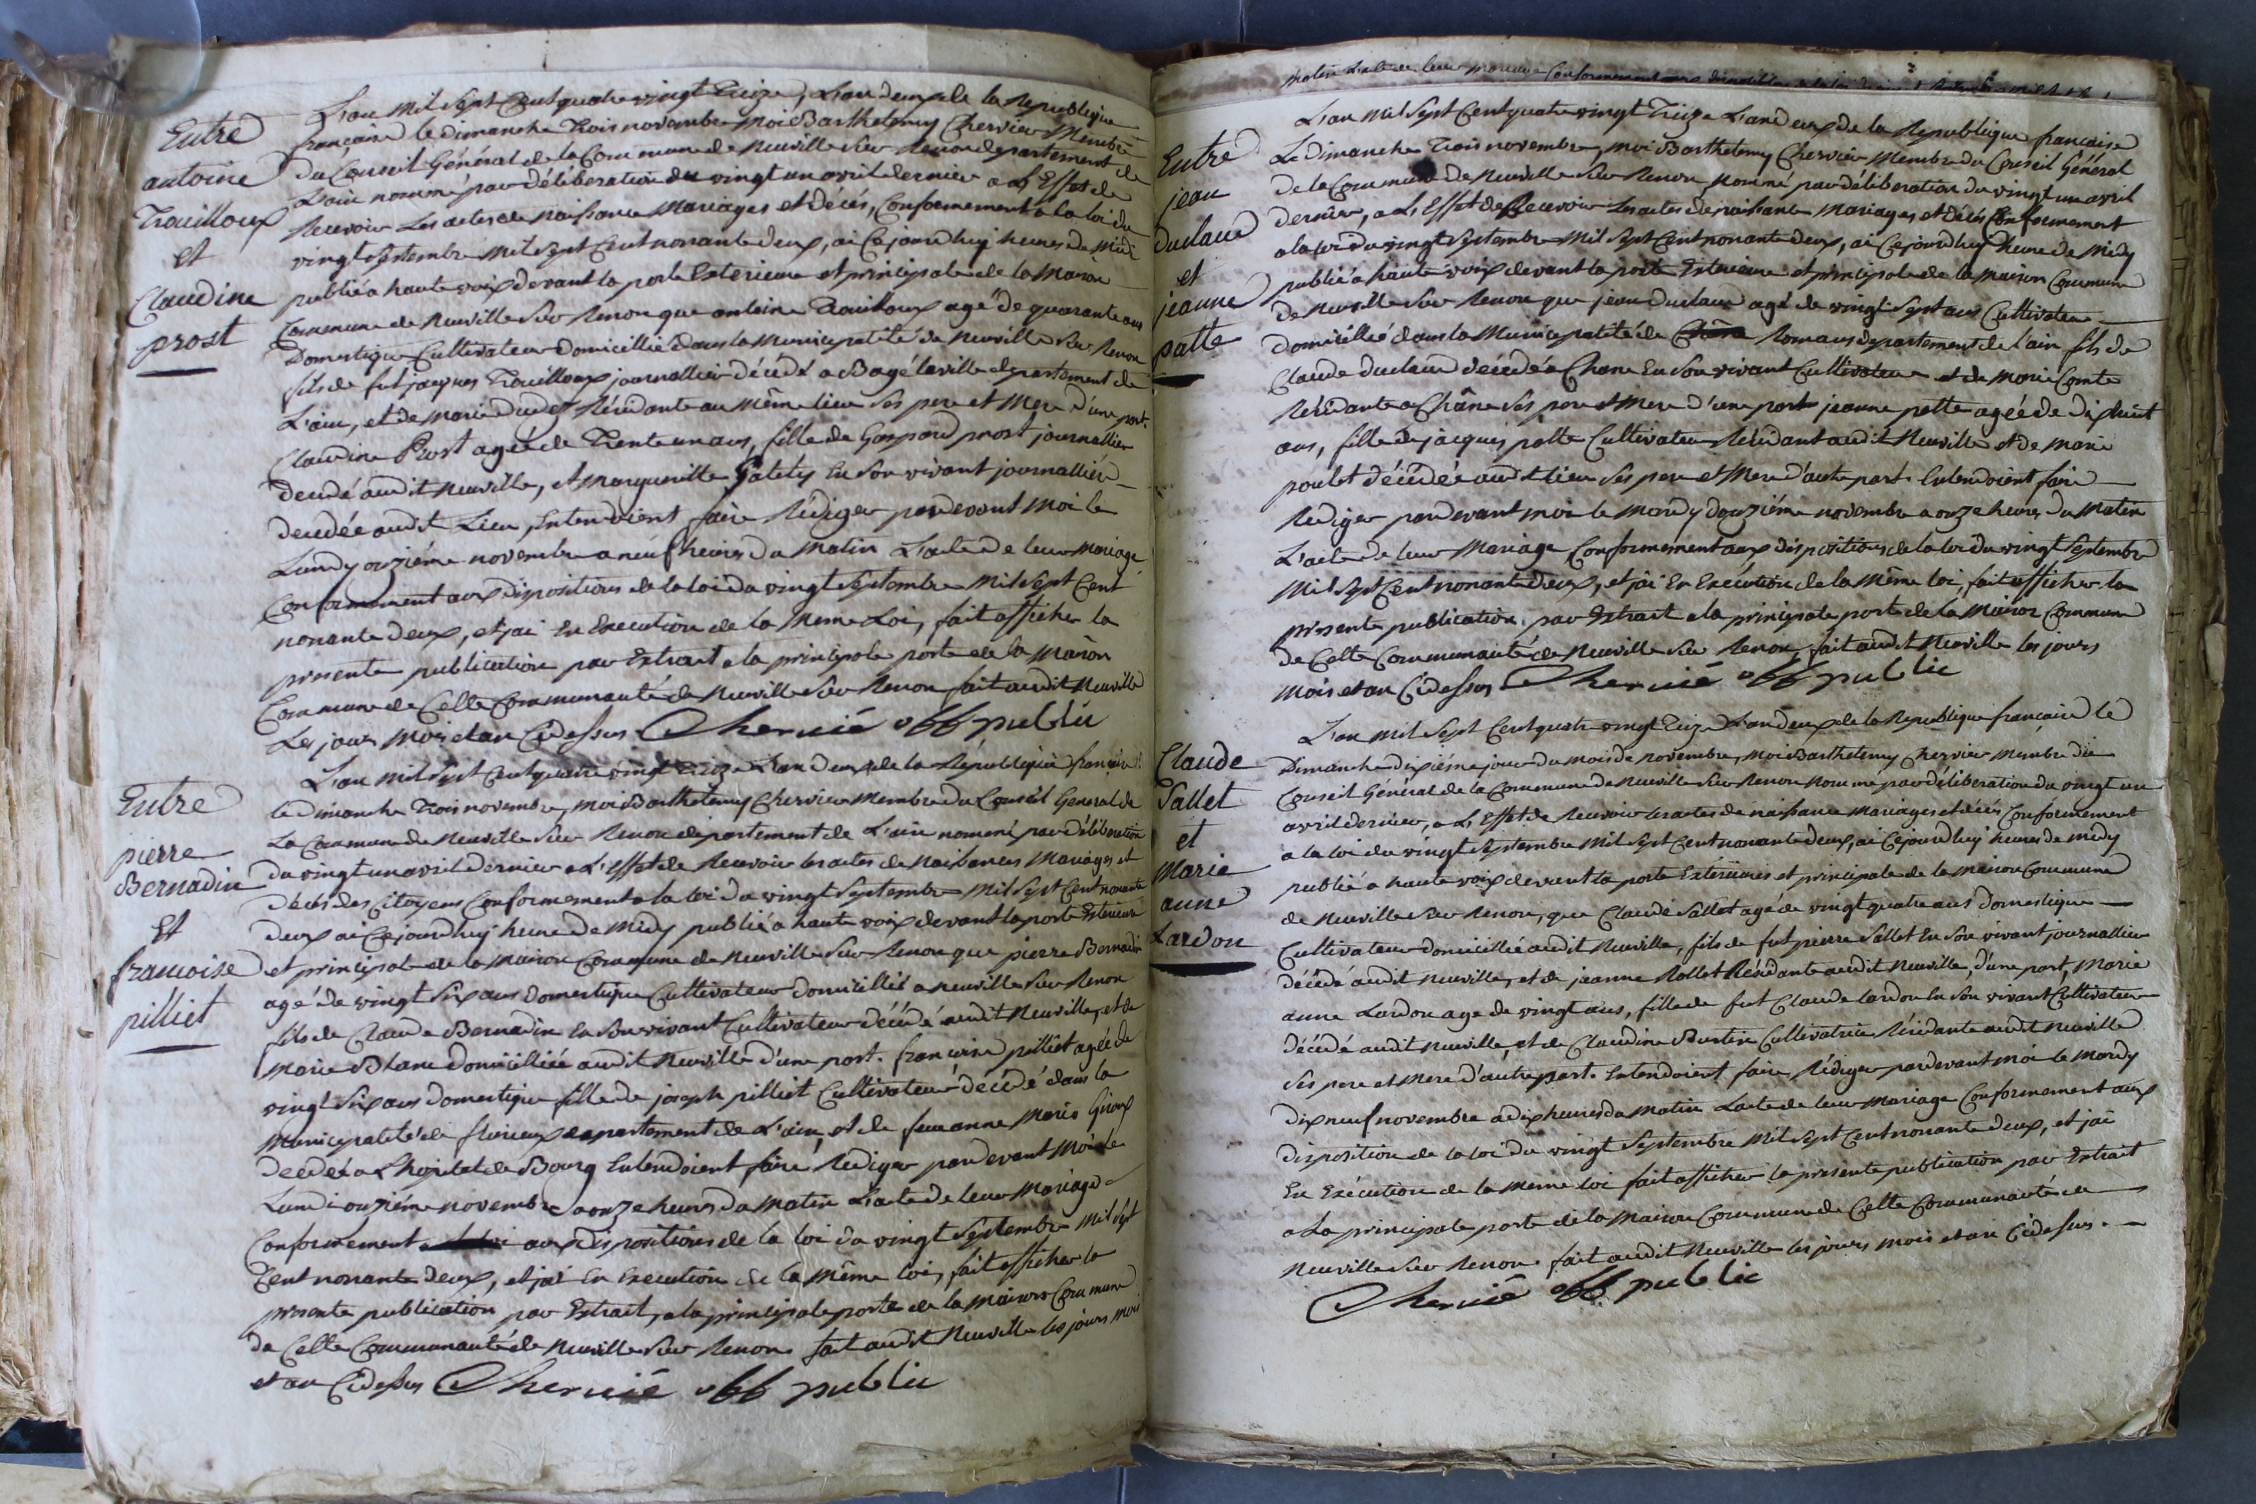 Entre
antoine
Trouilloux
et
Claudine
prost
L'an Mil Sept Cent quatre vingt Treize, L'an deux de la Republique
française le dimanche Trois novembre Moi Barthelemy Chervier Membre
du Conseil Général de la Commune de Neuville Sur Renon departement de
L'ain nommé par déliberation du vingt un avril dernier a L'Effet de
Recevoir Les actes de Naissance Mariages et décés, Conformement a la Loi du
vingt Septembre Mil Sept Cent nonante deux, ai Cejourd'huy heures de Midi
publié a haute voix devant la porte Exterieure et principale de la Maison
Commune de Neuville Sur Renon que antoine Trouilloux agé de quarante ans
Domestique Cultivateur domicillié dans la Municipalité de Neuville Sur Renon
fils de fut jacques Trouilloux journallier décédé a Bagé la ville departement de
L'ain, et de Marie Résidante au Même lieu Ses pere et Mere d'une part.
Claudine Prost agée de Trente un ans, fille de Gaspard prost journallier
decedé audit Neuville, et Margueritte En Son vivant journallière
decedée audit Lieu, Entendoient faire Rédiger pardevant Moi le
Lundy onziéme novembre a neuf heures du Matin L'acte de leur Mariage
Conformement aux dispositions de la loi du vingt Septembre Mil Sept Cent
nonante deux, et jai En Execution de la Meme Loi, fait afficher la
presente publication par Extrait a la principale porte de la Maison
Commune de Cette Communauté de Neuville Sur Renon fait audit Neuville
Les jours Mois et an Cidessus Chervié off public
Entre
pierre
Bernadin
et
francoise
pilliet
L'an Mil Sept Cent quatre vingt Treize L'an deux de la République française
le dimanche Trois novembre, Moi Barthelemy Chervier Membre du Conseil General de
La Commune de Neuville Sur Renon departement de L'ain nommé par déliberation
du vingt un avril dernier a L'Effet de Recevoir les actes de Naissances Mariages et
décés des Citoyens Conformement a la loi du vingt Septembre Mil Sept Cent nonante
deux ai Cejourd'huy heure de Midy publié a haute voix devant la porte Exterieure
et principale de la Maison Commune de Neuville Sur Renon que pierre Bernadin
agé de vingt Six ans Domestique Cultivateur domicillié a Neuville Sur Renon
fils de Claude Bernadin En Son vivant Cultivateur décédé audit Neuville, et de
Marie Blanc domicilliée audit Neuville d'une part. francoise pilliet agée de
vingt Six ans domestique fille de joseph pilliet Cultivateur décédé dans la
Municipalité de fleurieux departement de L'ain, et de feue anne Marie Giroux
decedée a L'hopital de Bourg Entendoient faire Rediger pardevant Moi le
Lundi onziéme novembre a onze heures du Matin L'acte de leur Mariage
Conformement aux dispositions de la loi du vingt Septembre Mil Sept
Cent nonante deux, et jai En Execution de la Même loi, fait afficher la
presente publication par Extrait, a la principale porte de la Maison Commune
de Cette Communauté de Neuville Sur Renon fait audit Neuville les jours mois
et an Cidessus Chervié off public
Matin L'acte de leur Mariage Conformement aux
Entre
jean
duclaud
et
jeanne
patte
L'an Mil Sept Cent quatre vingt Treize L'an deux de la Republique française
Le dimanche Trois novembre, Moi Barthelemy Chervier Membre du Conseil Général
de la Commune de Neuville Sur Renon Nommé par déliberation du vingt un avril
dernier, a L'Effet de Recevoir Les actes de naissance Mariages et décés Conformement
a la loi du vingt Septembre Mil Sept Cent nonante deux, ai Cejourd'huy heure de Midy
publié a haute voix devant la porte Exterieure et principale de la Maison Commune
de Neuville Sur Renon que jean duclaud agé de vingt Sept ans Cultivateur
domicillié dans la Municipalité de Romans departement de l'ain fils de
Claude duclaud décédé a Chane En Son vivant Cultivateur et de Marie Comte
Résidante a Chane Ses pere et Mere d'une part jeanne patte agée de dix huit
ans, fille de jacques patte Cultivateur Résidant audit Neuville et de Marie
poulet décédée audit lieu Ses pere et Mere d'autre part. Entendoient faire
Rediger pardevant moi le Mardy douziéme novembre a onze heures du Matin
L'acte de leur Mariage Conformement aux dispositions de la loi du vingt Septembre
Mil Sept Cent nonante deux, et jai En Exécution de la Même loi, fait afficher la
presente publication par Extrait a la principale porte de la Maison Commune
de Cette Communauté de Neuville Sur Renon, fait audit Neuville les jours
Mois et an Cidessus Chervié off public
Claude
Sallet
et
Marie
anne
Lardon
L'an Mil Sept Cent quatre vingt Treize L'an deux de la Republique française le
Dimanche dixiéme jour du Mois de novembre, Moi Barthelemy Chervier Membre du
Conseil Général de la Commune de Neuville Sur Renon Nommé par déliberation du vingt un
avril dernier, a L'Effet de Recevoir les actes de naissance Mariages et décés Conformement
a la loi du vingt Septembre Mil Sept Cent nonante deux, ai Cejourd'huy heures de midy
publié a haute voix devant la porte Exterieure et principale de la Maison Commune
de Neuville Sur Renon, que Claude Sallet agé de vingt quatre ans domestique
Cultivateur domicillié audit Neuville, fils de fut pierre Sallet En Son vivant journallier
décédé audit Neuville, et de jeanne Rollet Résidante audit Neuville, d'une part, Marie
anne Lardon age de vingt ans, fille de fut Claude Lardon En Son vivant Cultivateur
décédé audit Neuville, et de Claudine Burtin Cultivatrice Résidante audit Neuville
Ses pere et Mere d'autre part. Entendoient faire Rédiger pardevant moi le Mardy
dix neuf novembre a dix heures du Matin L'acte de leur Mariage Conformement aux
disposition de la loi du vingt Septembre Mil Sept Cent nonante deux, et jai
En Exécution de la Meme loi fait afficher la presente publication par Extrait
a La principale porte de la Maison Commune de Cette Communauté de
Neuville Sur Renon fait audit Neuville les jours mois et an Cidessus.
Chervié off public